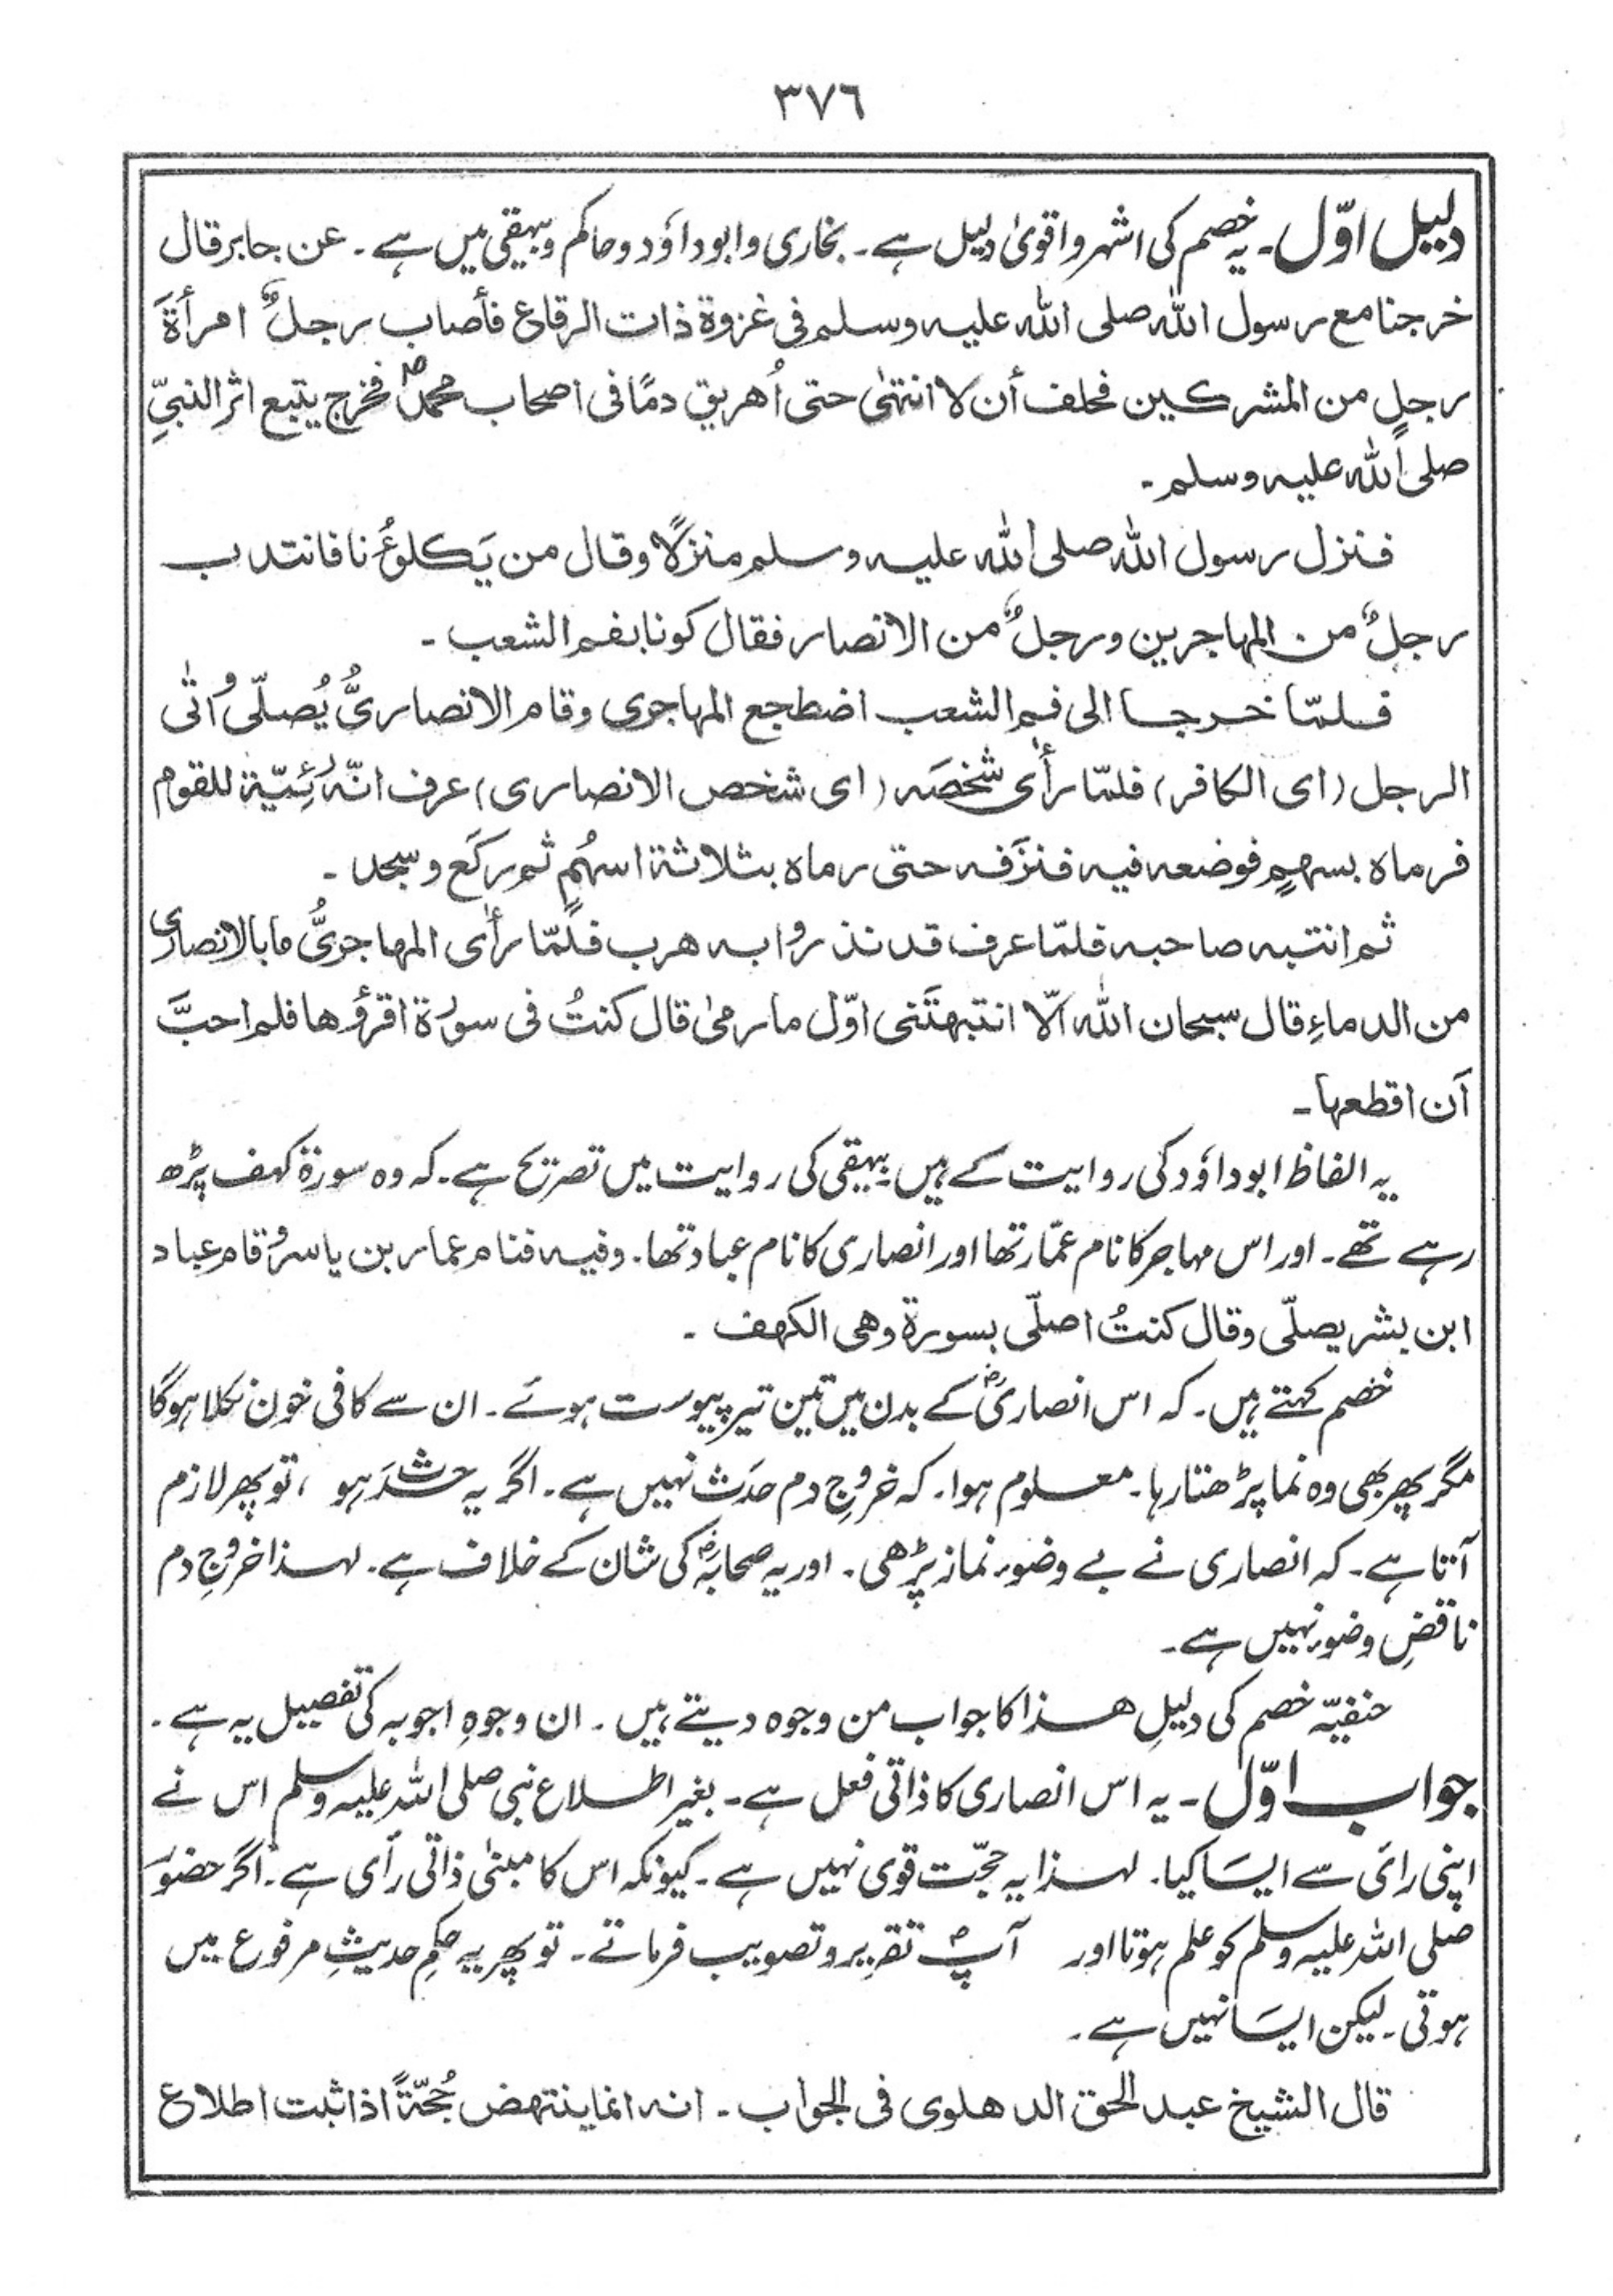 ٣٧٦
دلیل اوّل۔ یہ خصم کی اشہر واقویٰ دلیل ہے۔ بخاری وابوداؤد وحاکم وبیہقی میں ہے۔ عن جابر قال
خرجنا مع رسول اللہ صلی اللہ علیہ وسلم فی غزوۃ ذات الرقاع فأصاب رجلٌ امرأۃَ
رجلٍ من المشرکین فحلف أن لا انتہیٰ حتی اُھریق دمًا فی اصحاب محمدؐ فخرج یتبع اثر النبیِّ
صلی اللہ علیہ وسلم۔
فنزل رسول اللہ صلی اللہ علیہ وسلم منزلًا وقال من یَکلؤُنا فانتدب
رجلٌ من المہاجرین ورجلٌ من الانصار فقال کونا بفم الشعب۔
فلمّا خرجا الی فم الشعب اضطجع المہاجری وقام الانصاریُّ یُصلّی واُتٰی
الرجل (ای الکافر) فلمّا رأی شخصَہ (ای شخص الانصاری) عرف انّہ رَئِیّۃ للقوم
فرماہ بسھمٍ فوضعہ فیہ فنزَفہ حتی رماہ بثلاثۃ اسہُمٍ ثم رکَع وسجد۔
ثم انتبہ صاحبہ فلمّا عرف قد نذروا بہ ھرب فلمّا رأی المھاجریُّ ما بالانصاری
من الدماءِ قال سبحان اللہ اَلّا انتبھتَنی اوّل ما رمیٰ قال کنتُ فی سورۃ اقرؤھا فلم احبَّ
اَن اقطعہا۔
یہ الفاظ ابوداؤد کی روایت کے ہیں۔ بیہقی کی روایت میں تصریح ہے۔ کہ وہ سورۃ کہف پڑھ
رہے تھے۔ اور اس مہاجر کا نام عمّار تھا اور انصاری کا نام عباد تھا۔ وفیہ فنام عمار بن یاسر وقام عباد
ابن بشر یصلّی وقال کنتُ اصلّی بسورۃ وھی الکھف۔
خصم کہتے ہیں۔ کہ اس انصاریؓ کے بدن میں تین تیر پیوست ہوئے۔ ان سے کافی خون نکلا ہوگا
مگر پھر بھی وہ نما پڑھتا رہا۔ معلوم ہوا۔ کہ خروجِ دم حدَث نہیں ہے۔ اگر یہ حدَث ہو، تو پھر لازم
آتا ہے۔ کہ انصاری نے بے وضوء نماز پڑھی۔ اور یہ صحابہؓ کی شان کے خلاف ہے۔ لہذا خروجِ دم
ناقضِ وضوء نہیں ہے۔
حنفیّہ خصم کی دلیلِ ھذا کا جواب من وجوہ دیتے ہیں۔ ان وجوہِ اجوبہ کی تفصیل یہ ہے۔
جواب اوّل۔ یہ اس انصاری کا ذاتی فعل ہے۔ بغیر اطلاع نبی صلی اللہ علیہ وسلم اس نے
اپنی رائی سے ایسَا کیا۔ لہذا یہ حجّت قوی نہیں ہے۔ کیونکہ اس کا مبنیٰ ذاتی رأی ہے۔ اگر حضور
صلی اللہ علیہ وسلم کو علم ہوتا اور آپؐ تقریر وتصویب فرماتے۔ تو پھر یہ حکمِ حدیثِ مرفوع میں
ہوتی۔ لیکن ایسَا نہیں ہے۔
قال الشیخ عبدالحق الدھلوی فی الجواب۔ انہ انما ینتھض حُجّۃً اذا ثبت اطلاع